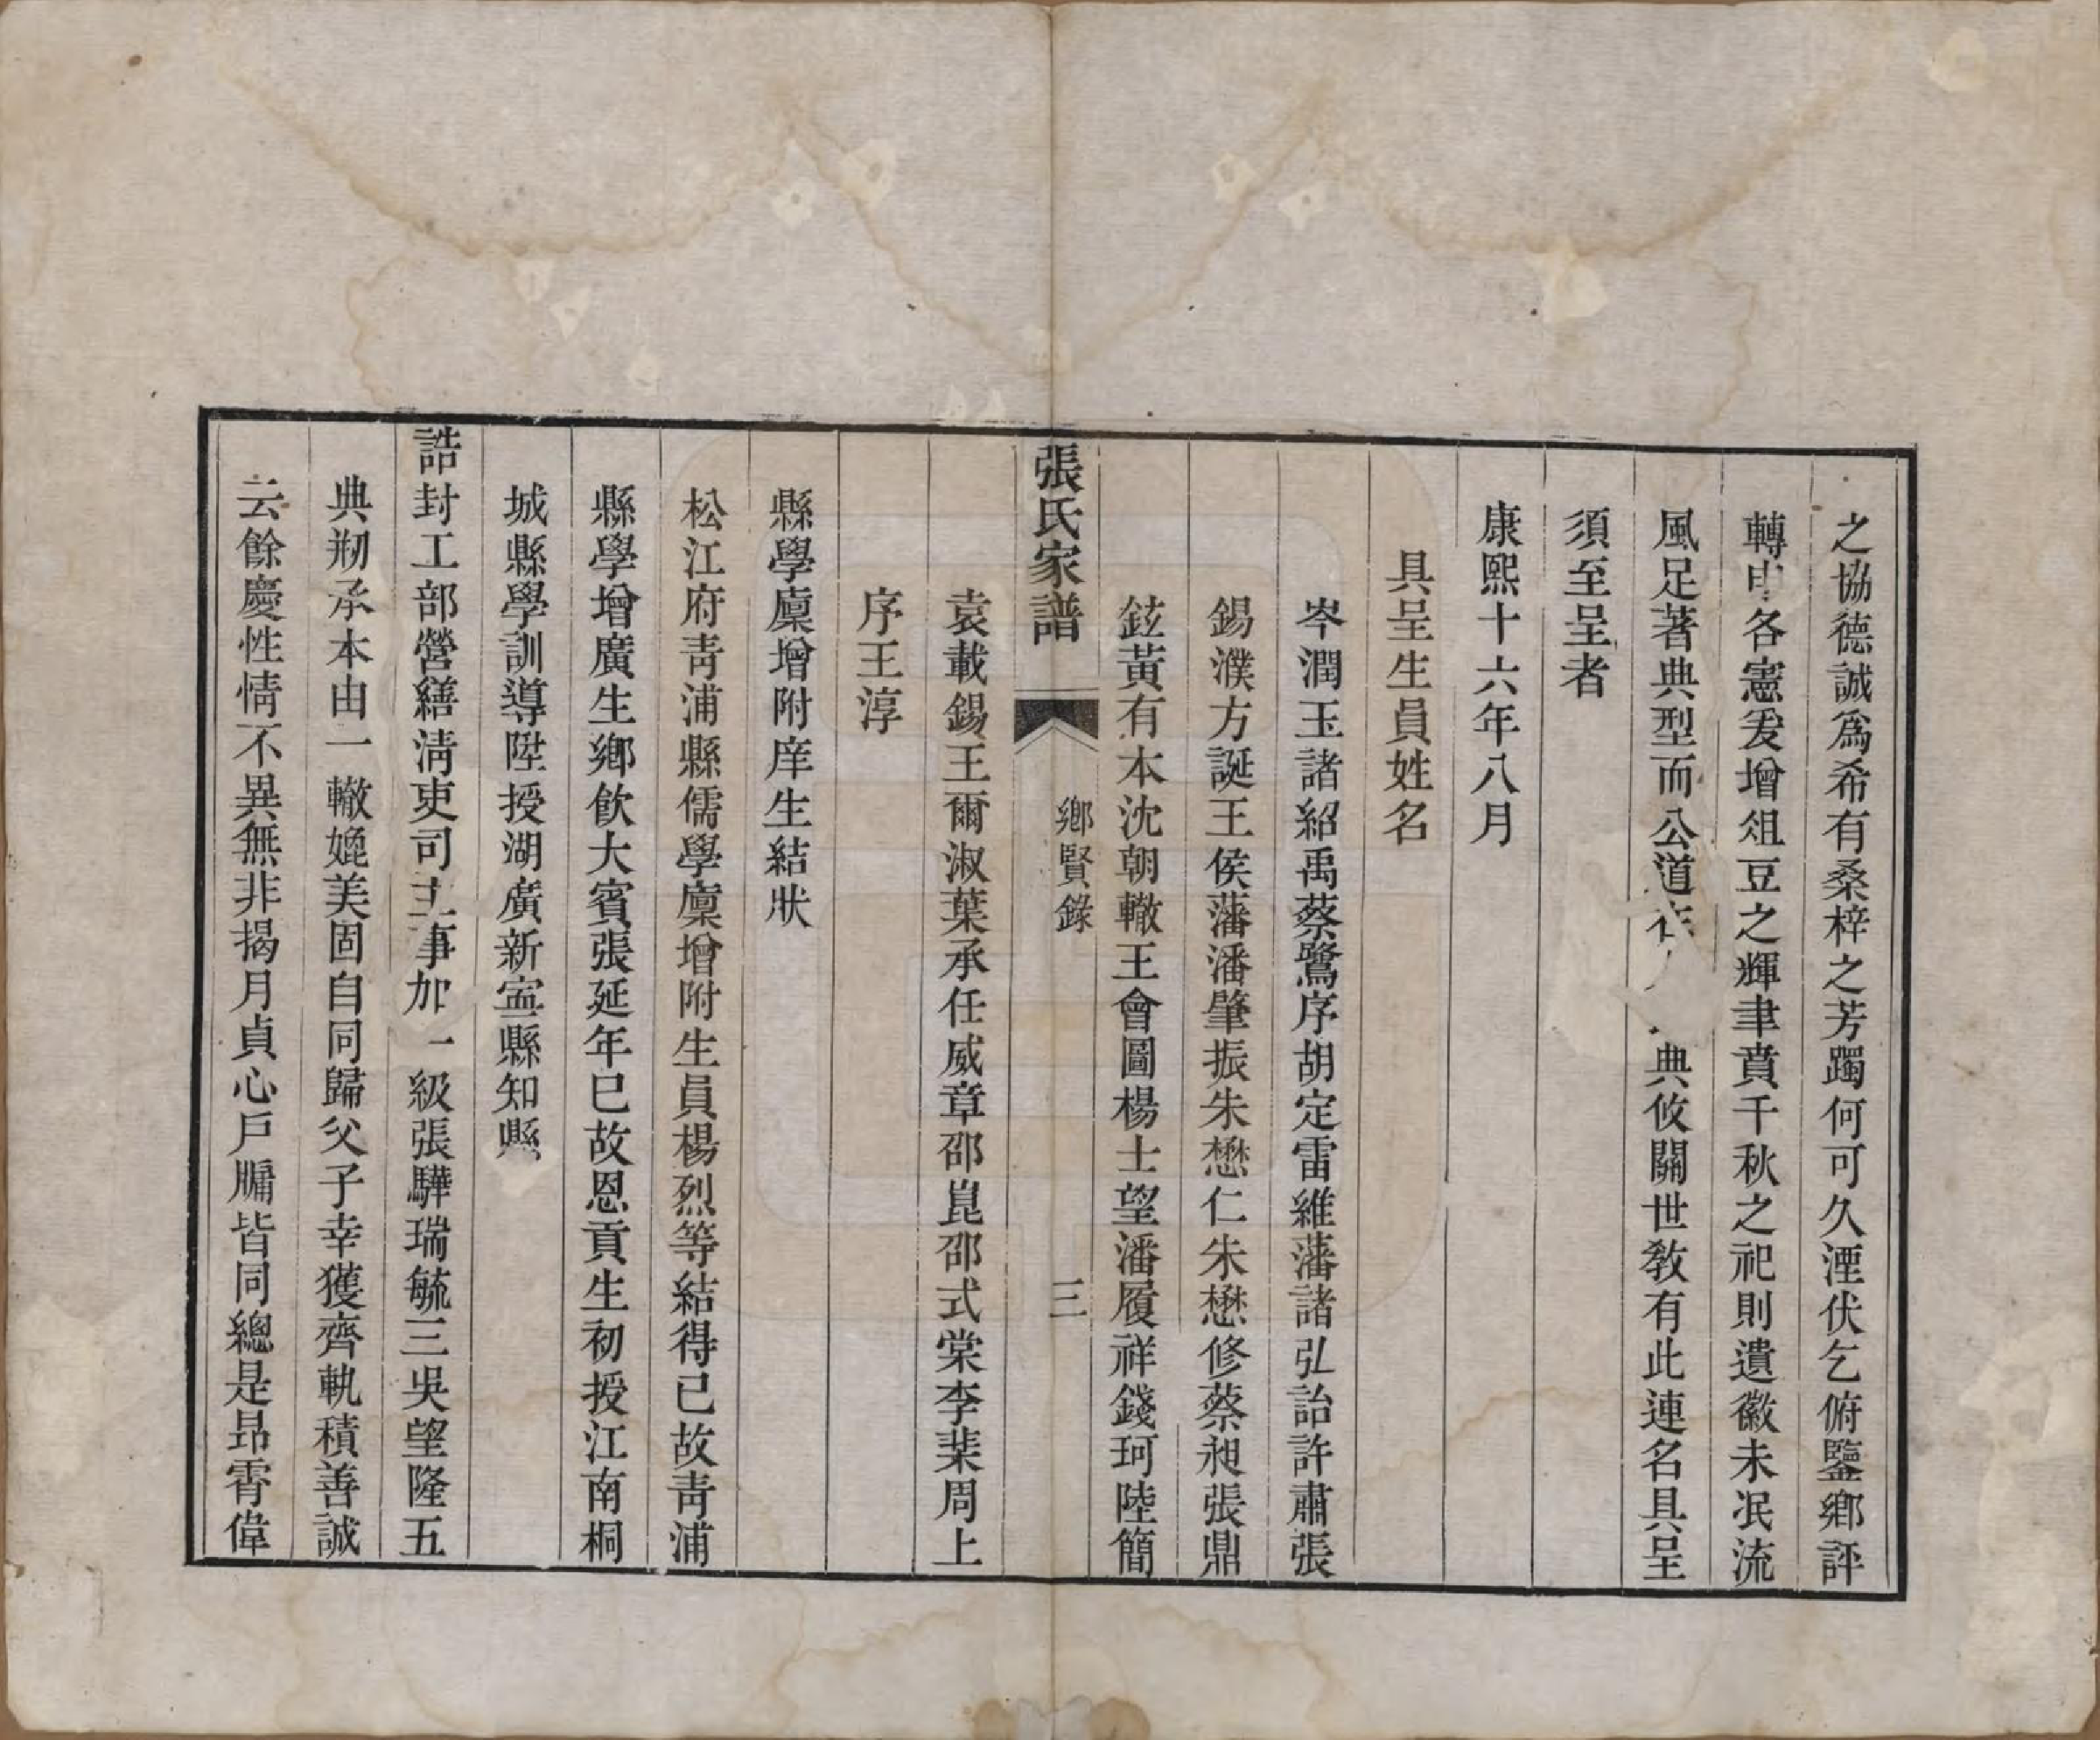 之協德誠爲希有桑梓之芳躅何可久湮伏乞俯鑒鄉評
轉申各憲爰增俎豆之輝聿賁千秋之祀則遺徽未泯流
風足著典型而公道在典攸關世教有此連名具呈
須至呈者
康熙十六年八月
具呈生員姓名
岑潤玉諸紹禹蔡鷺序胡定雷維藩諸弘詒許肅張
錫濮方誕王侯藩潘肇振朱懋仁朱懋修蔡昶張鼎
鉉黃有本沈朝轍王會圖楊士望潘履祥錢珂陸簡
張氏家譜
鄉賢錄
三
袁載錫王爾淑葉承任威章邵崑邵式棠李棐周上
序王淳
縣學廩增附庠生結狀
松江府靑浦縣儒學廩增附生員楊烈等結得已故靑浦
縣學增廣生鄉飮大賓張延年已故恩貢生初授江南桐
城縣學訓導陞授湖廣新寧縣知縣
誥封工部營繕淸吏司主事加一級張驊瑞毓三吳望隆五
典剏承本由一轍媲美固自同歸父子幸獲齊軌積善誠
云餘慶性情不異無非揭月貞心戶牖皆同總是昂霄偉